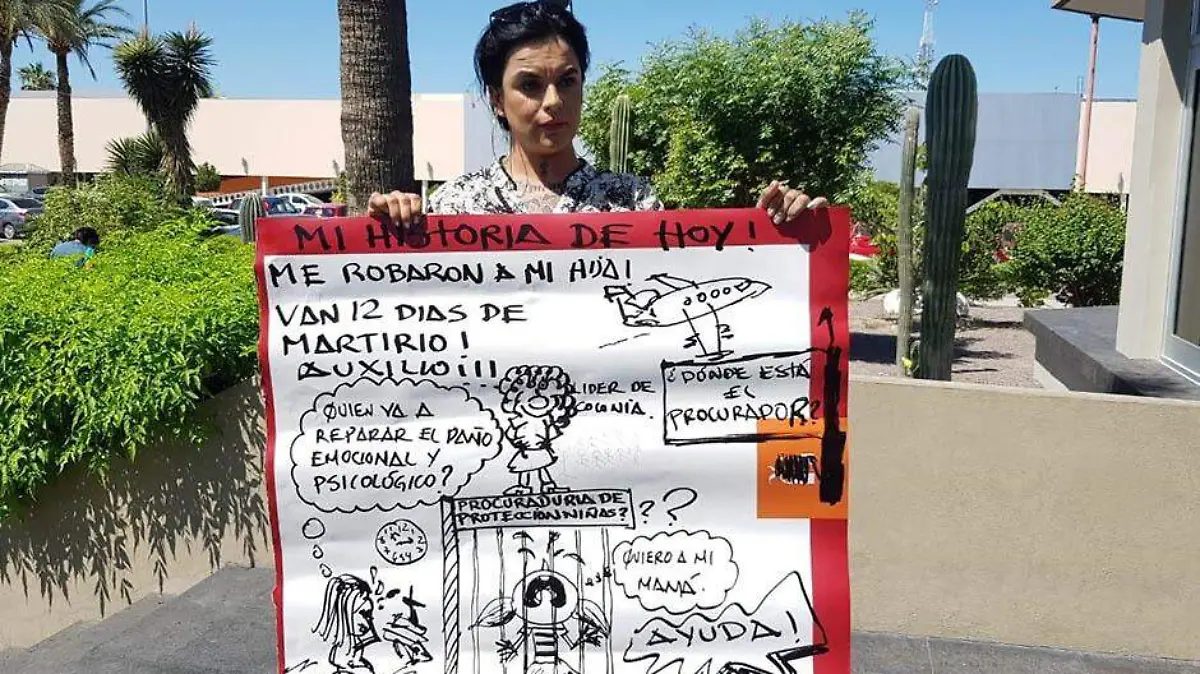 MI HISTORIA DE HOY!
ME ROBARON A MI HIJA!
VAN 12 DIAS DE
MARTIRIO!
AUXILIO!!!
LIDER DE
COLONIA.
¿DÓNDE ESTÁ
EL
PROCURADOR?
QUIEN VA A
REPARAR EL DAÑO
EMOCIONAL Y
PSICOLÓGICO?
PROCURADURIA DE
PROTECCIÓN NIÑAS?
??
QUIERO A MI
MAMÁ.
¡AYUDA!